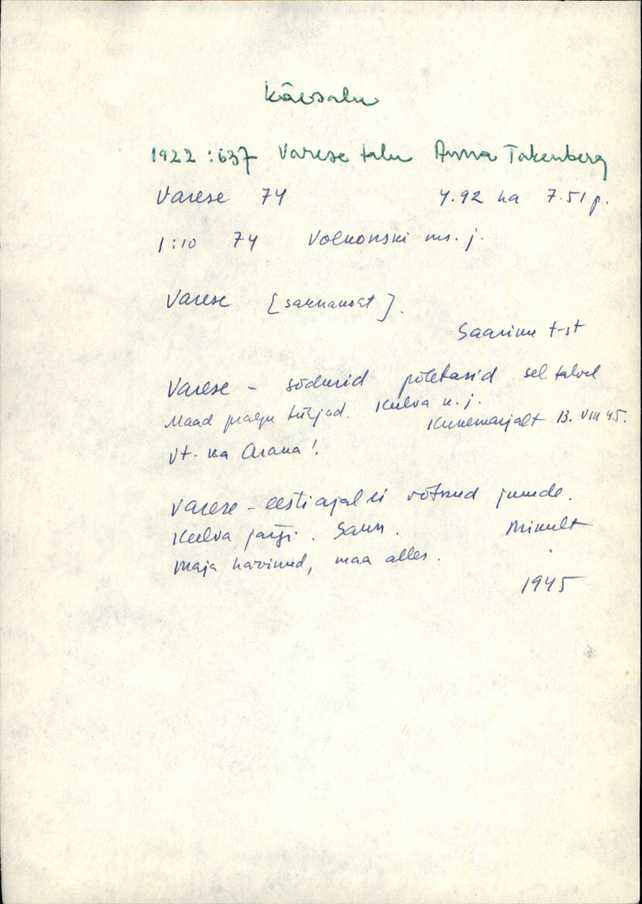 Käesalu
1922 : 637 Varese talu Anna Takenberg
Varese 74 4.92 ha 7.51 p.
1:10 74 Volkonski ms. j.
Varese [ ].
Saarime t-st
Varese – sõdurid põletasid sel talvel
Maad palju tühjad. Kulva n. j.
Kukemarjalt 13. VIII 45.
Vt. ka !
Varese – eesti ajal ei võtnud juurde.
Kulva järgi. Saun. Minult
Maja hävinud, maa alles.
1945